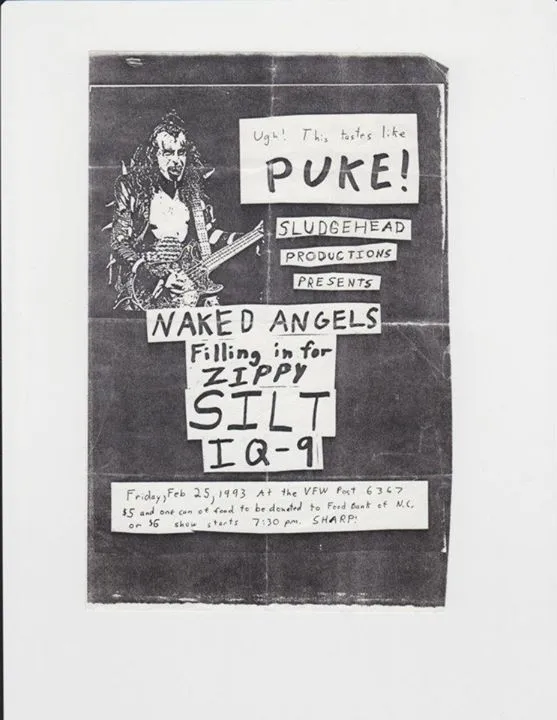 Ugh! This tastes like
PUKE!
SLUDGEHEAD
PRODUCTIONS
PRESENTS
NAKED ANGELS
Filling in for
ZIPPY
SILT
IQ-9
Friday, Feb 25, 1993 At the VFW Post 6367
$5 and one can of food to be donated to Food Bank of N.C.
or $6 show starts 7:30 pm. SHARP!